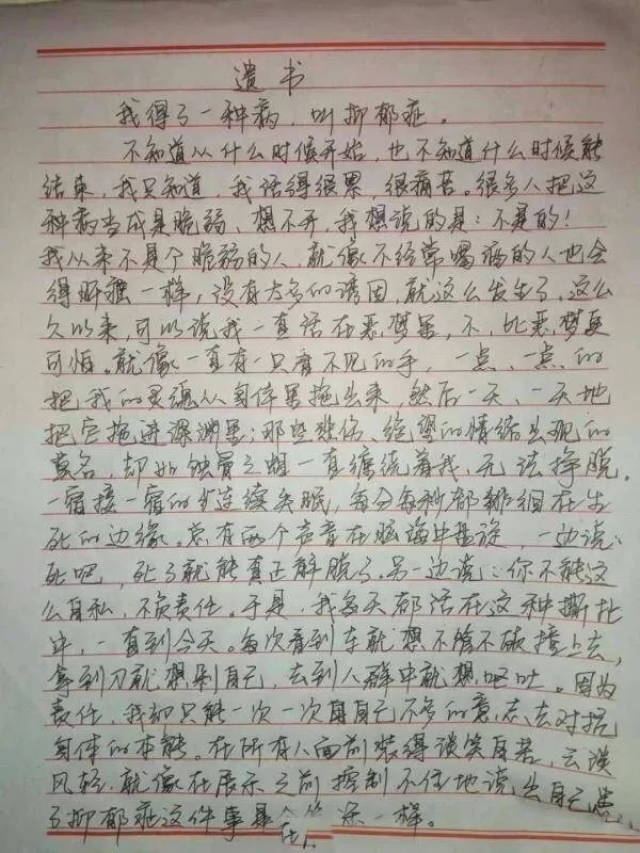 遗书
我得了一种病，叫抑郁症。
不知道从什么时候开始，也不知道什么时候能
结束，我只知道，我活得很累，很痛苦。很多人把这
种病当成是脆弱、想不开，我想说的是：不是的！
我从来不是个脆弱的人，就像不经常喝酒的人也会
得肝癌一样，没有太多的诱因，就这么发生了。这么
久以来，可以说我一直活在恶梦里，不，比恶梦更
可怕。就像一直有一只看不见的手，一点、一点的
把我的灵魂从身体里拖出来，然后一天、一天地
把它拖进深渊里；那些悲伤、绝望的情绪出现的
莫名，却如蚀骨之蛆一直缠绕着我，无法挣脱。
一宿接一宿的连续失眠，每分每秒都徘徊在生
死的边缘。总有两个声音在脑海中盘旋，一边说：
死吧，死了就能真正解脱了。另一边说：你不能这
么自私，不负责任。于是，我每天都活在这种撕扯
中，一直到今天。每次看到车就想不管不顾撞上去，
拿到刀就想剁自己，去到人群中就想呕吐。因为
责任，我却只能一次一次用自己不多的意志去对抗
身体的本能。在所有人面前装得谈笑自若，云淡
风轻，就像在展示之前控制不住地说出自己患
了抑郁症这件事是 一样。